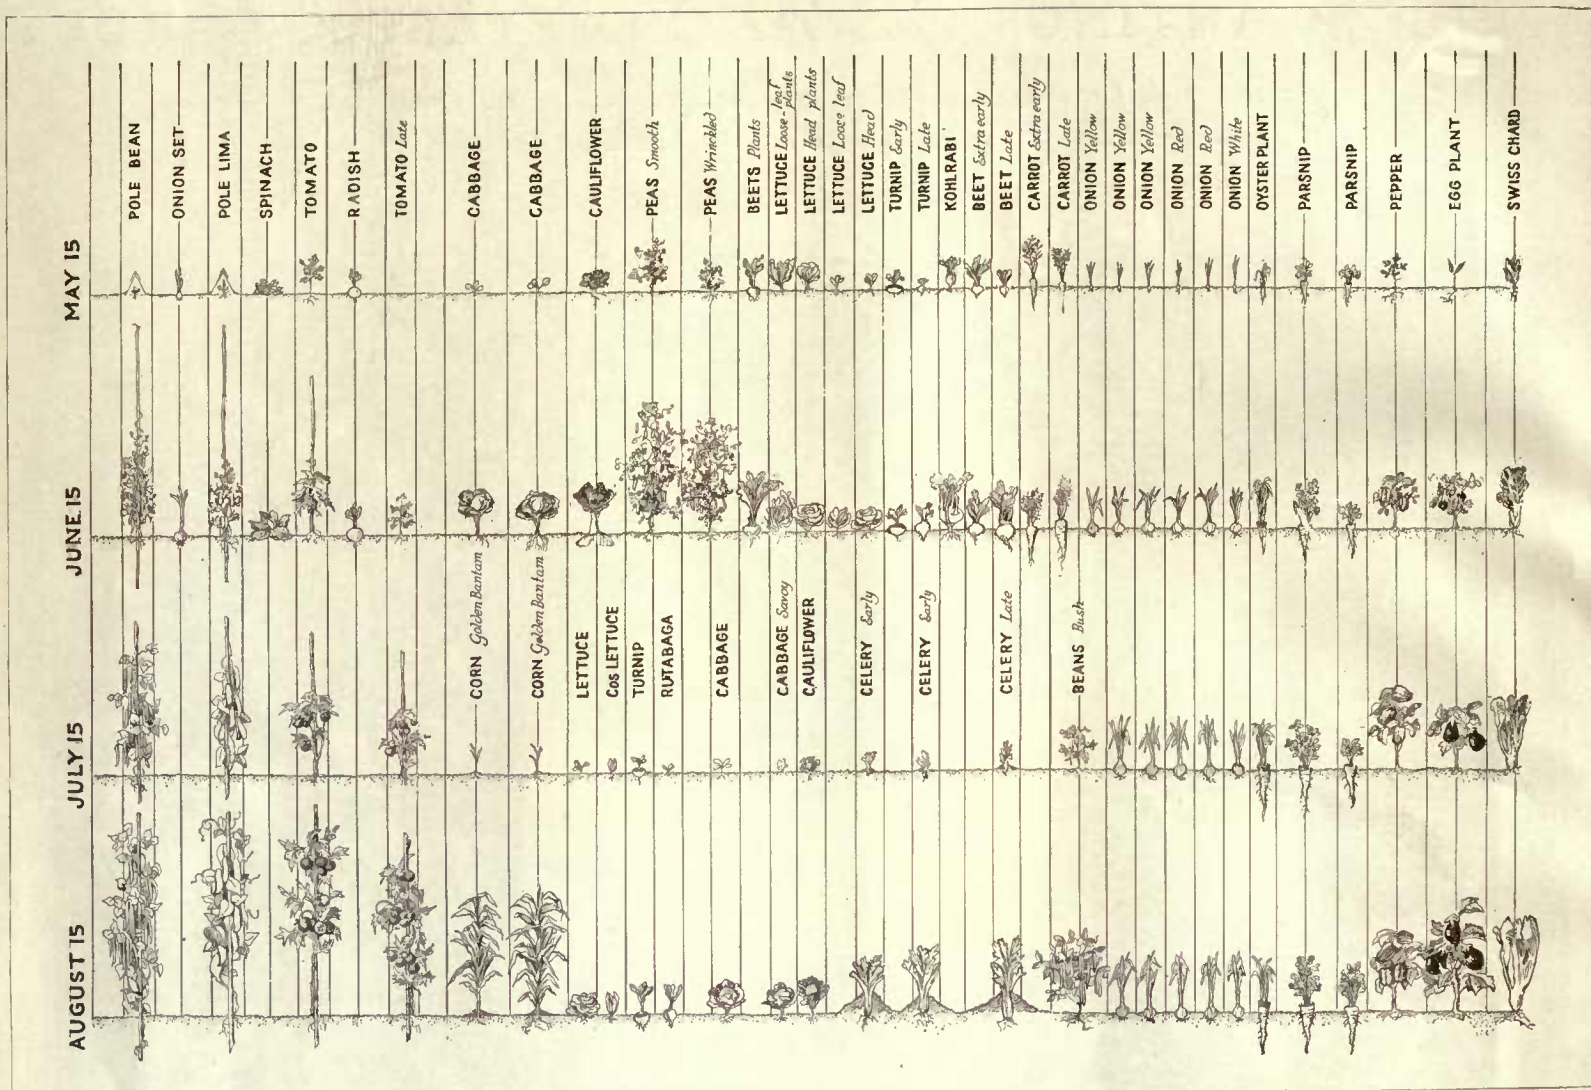 MAY 15
POLE BEAN
ONION SET
POLE LIMA
SPINACH
TOMATO
RADISH
TOMATO Late
CABBAGE
CABBAGE
CAULIFLOWER
PEAS Smooth
PEAS Wrinckled
BEETS Plants
LETTUCE Loose-leaf plants
LETTUCE Head plants
LETTUCE Loose leaf
LETTUCE Head
TURNIP Early
TURNIP Late
KOHLRABI
BEET Extra early
BEET Late
CARROT Extra early
CARROT Late
ONION Yellow
ONION Yellow
ONION Yellow
ONION Red
ONION Red
ONION White
OYSTER PLANT
PARSNIP
PARSNIP
PEPPER
EGG PLANT
SWISS CHARD
JUNE.15
JULY 15
CORN Golden Bantam
CORN Golden Bantam
LETTUCE
COS LETTUCE
TURNIP
RUTABAGA
CABBAGE
CABBAGE Savoy
CAULIFLOWER
CELERY Early
CELERY Early
CELERY Late
BEANS Bush
AUGUST 15